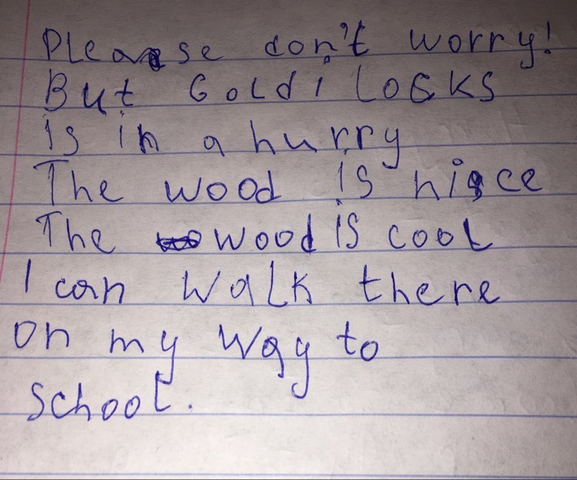 Please don't worry!
But Goldi Locks
is in a hurry
The wood is nice
The wood is cool
I can walk there
on my way to
school.